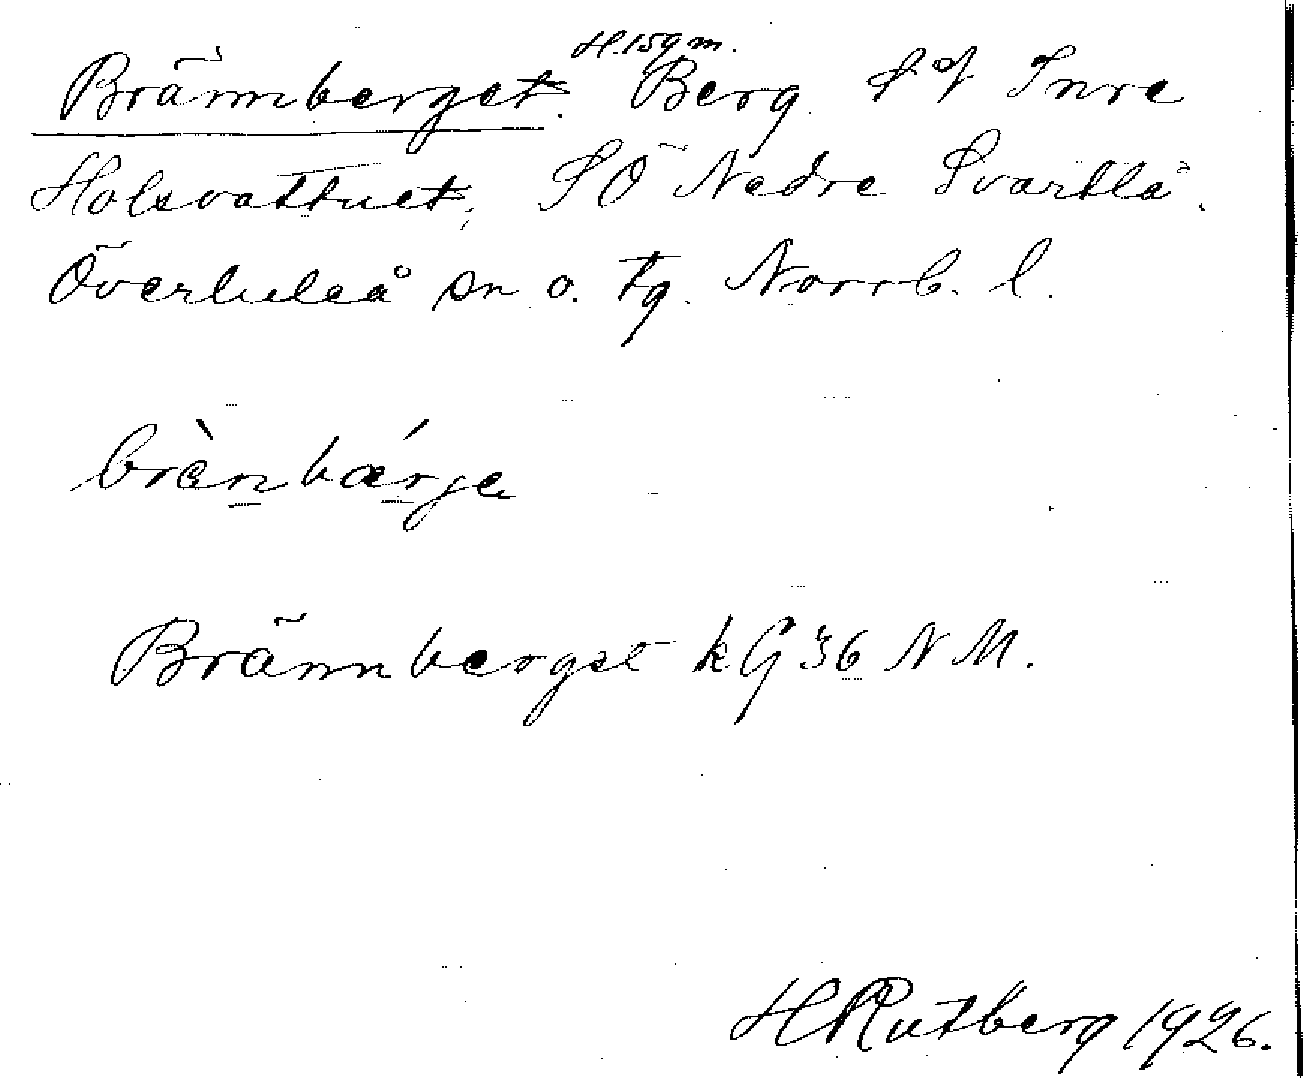 H. 159 m.
Brännberget. Berg S of Inre
Holsvattnet, SÖ Nedre Svartlå.
Överluleå sn o. tg. Norrb. l.
brènbǽrje
Brännberget kG 36 NM.
H Rutberg 1926.